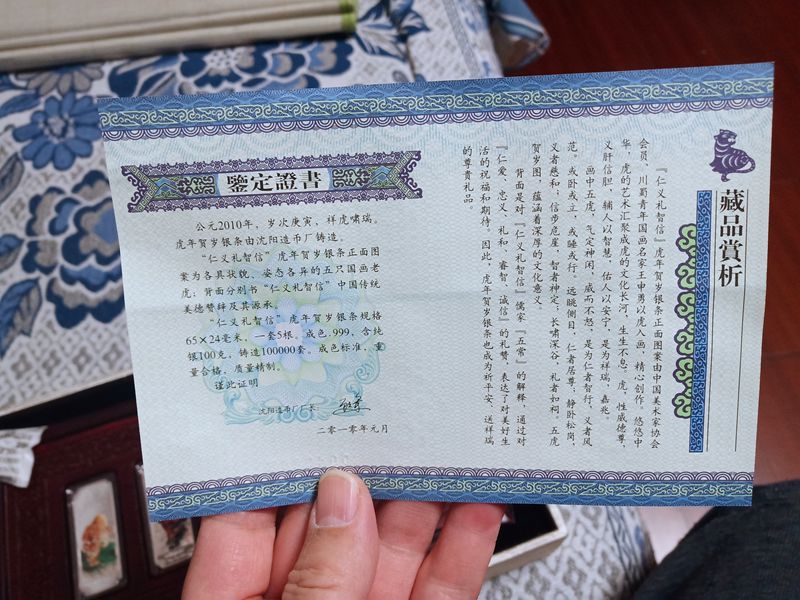 鉴定證書
公元2010年，岁次庚寅，祥虎啸瑞。
虎年贺岁银条由沈阳造币厂铸造。
“仁义礼智信”虎年贺岁银条正面图
案为各具状貌、姿态各异的五只国画老
虎；背面分别书“仁义礼智信”中国传统
美德赞辞及其源承。
“仁义礼智信”虎年贺岁银条规格
65×24毫米，一套5根。成色.999，含纯
银100克，铸造100000套。成色标准，重
量合格，质量精制。
谨此证明
沈阳造币厂厂长：
二〇一〇年元月
藏品赏析
『仁义礼智信』虎年贺岁银条正面图案由中国美术家协会
会员、川蜀青年国画名家王申勇以虎入画，精心创作。悠悠中
华，虎的艺术汇聚成虎的文化长河，生生不息。虎，性威德尊，
义肝信胆，辅人以智慧，佑人以安宁，是为祥瑞，嘉兆。
画中五虎，气定神闲，威而不怒，是为仁者智行，义者风
范。或卧或立，或睡或行，远眺侧目，仁者居尊，静卧松岗，
义者慈和；信步危崖，智者神定；长啸深谷，礼者如祠。五虎
贺岁图，蕴涵着深厚的文化意义。
背面是对『仁义礼智信』儒家『五常』的解释，通过对
『仁爱、忠义、礼和、睿智、诚信』的礼赞，表达了对美好生
活的祝福和期待。因此，虎年贺岁银条也成为祈平安、送祥瑞
的尊贵礼品。